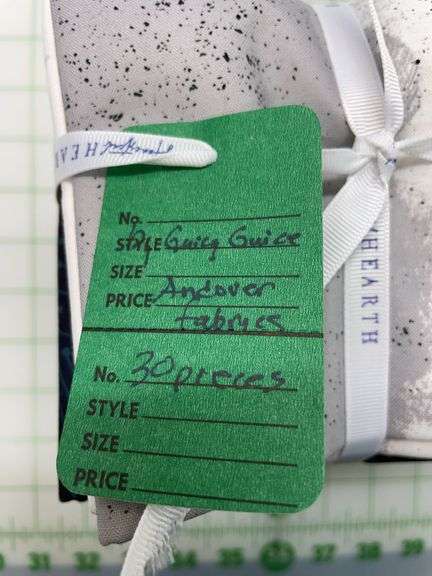 HEARTH
HEARTH
No.
STYLE by Guicy Guice
SIZE
PRICE Andover
fabrics
No. 30 pieces
STYLE
SIZE
PRICE
31 32 34 35 37 38 39